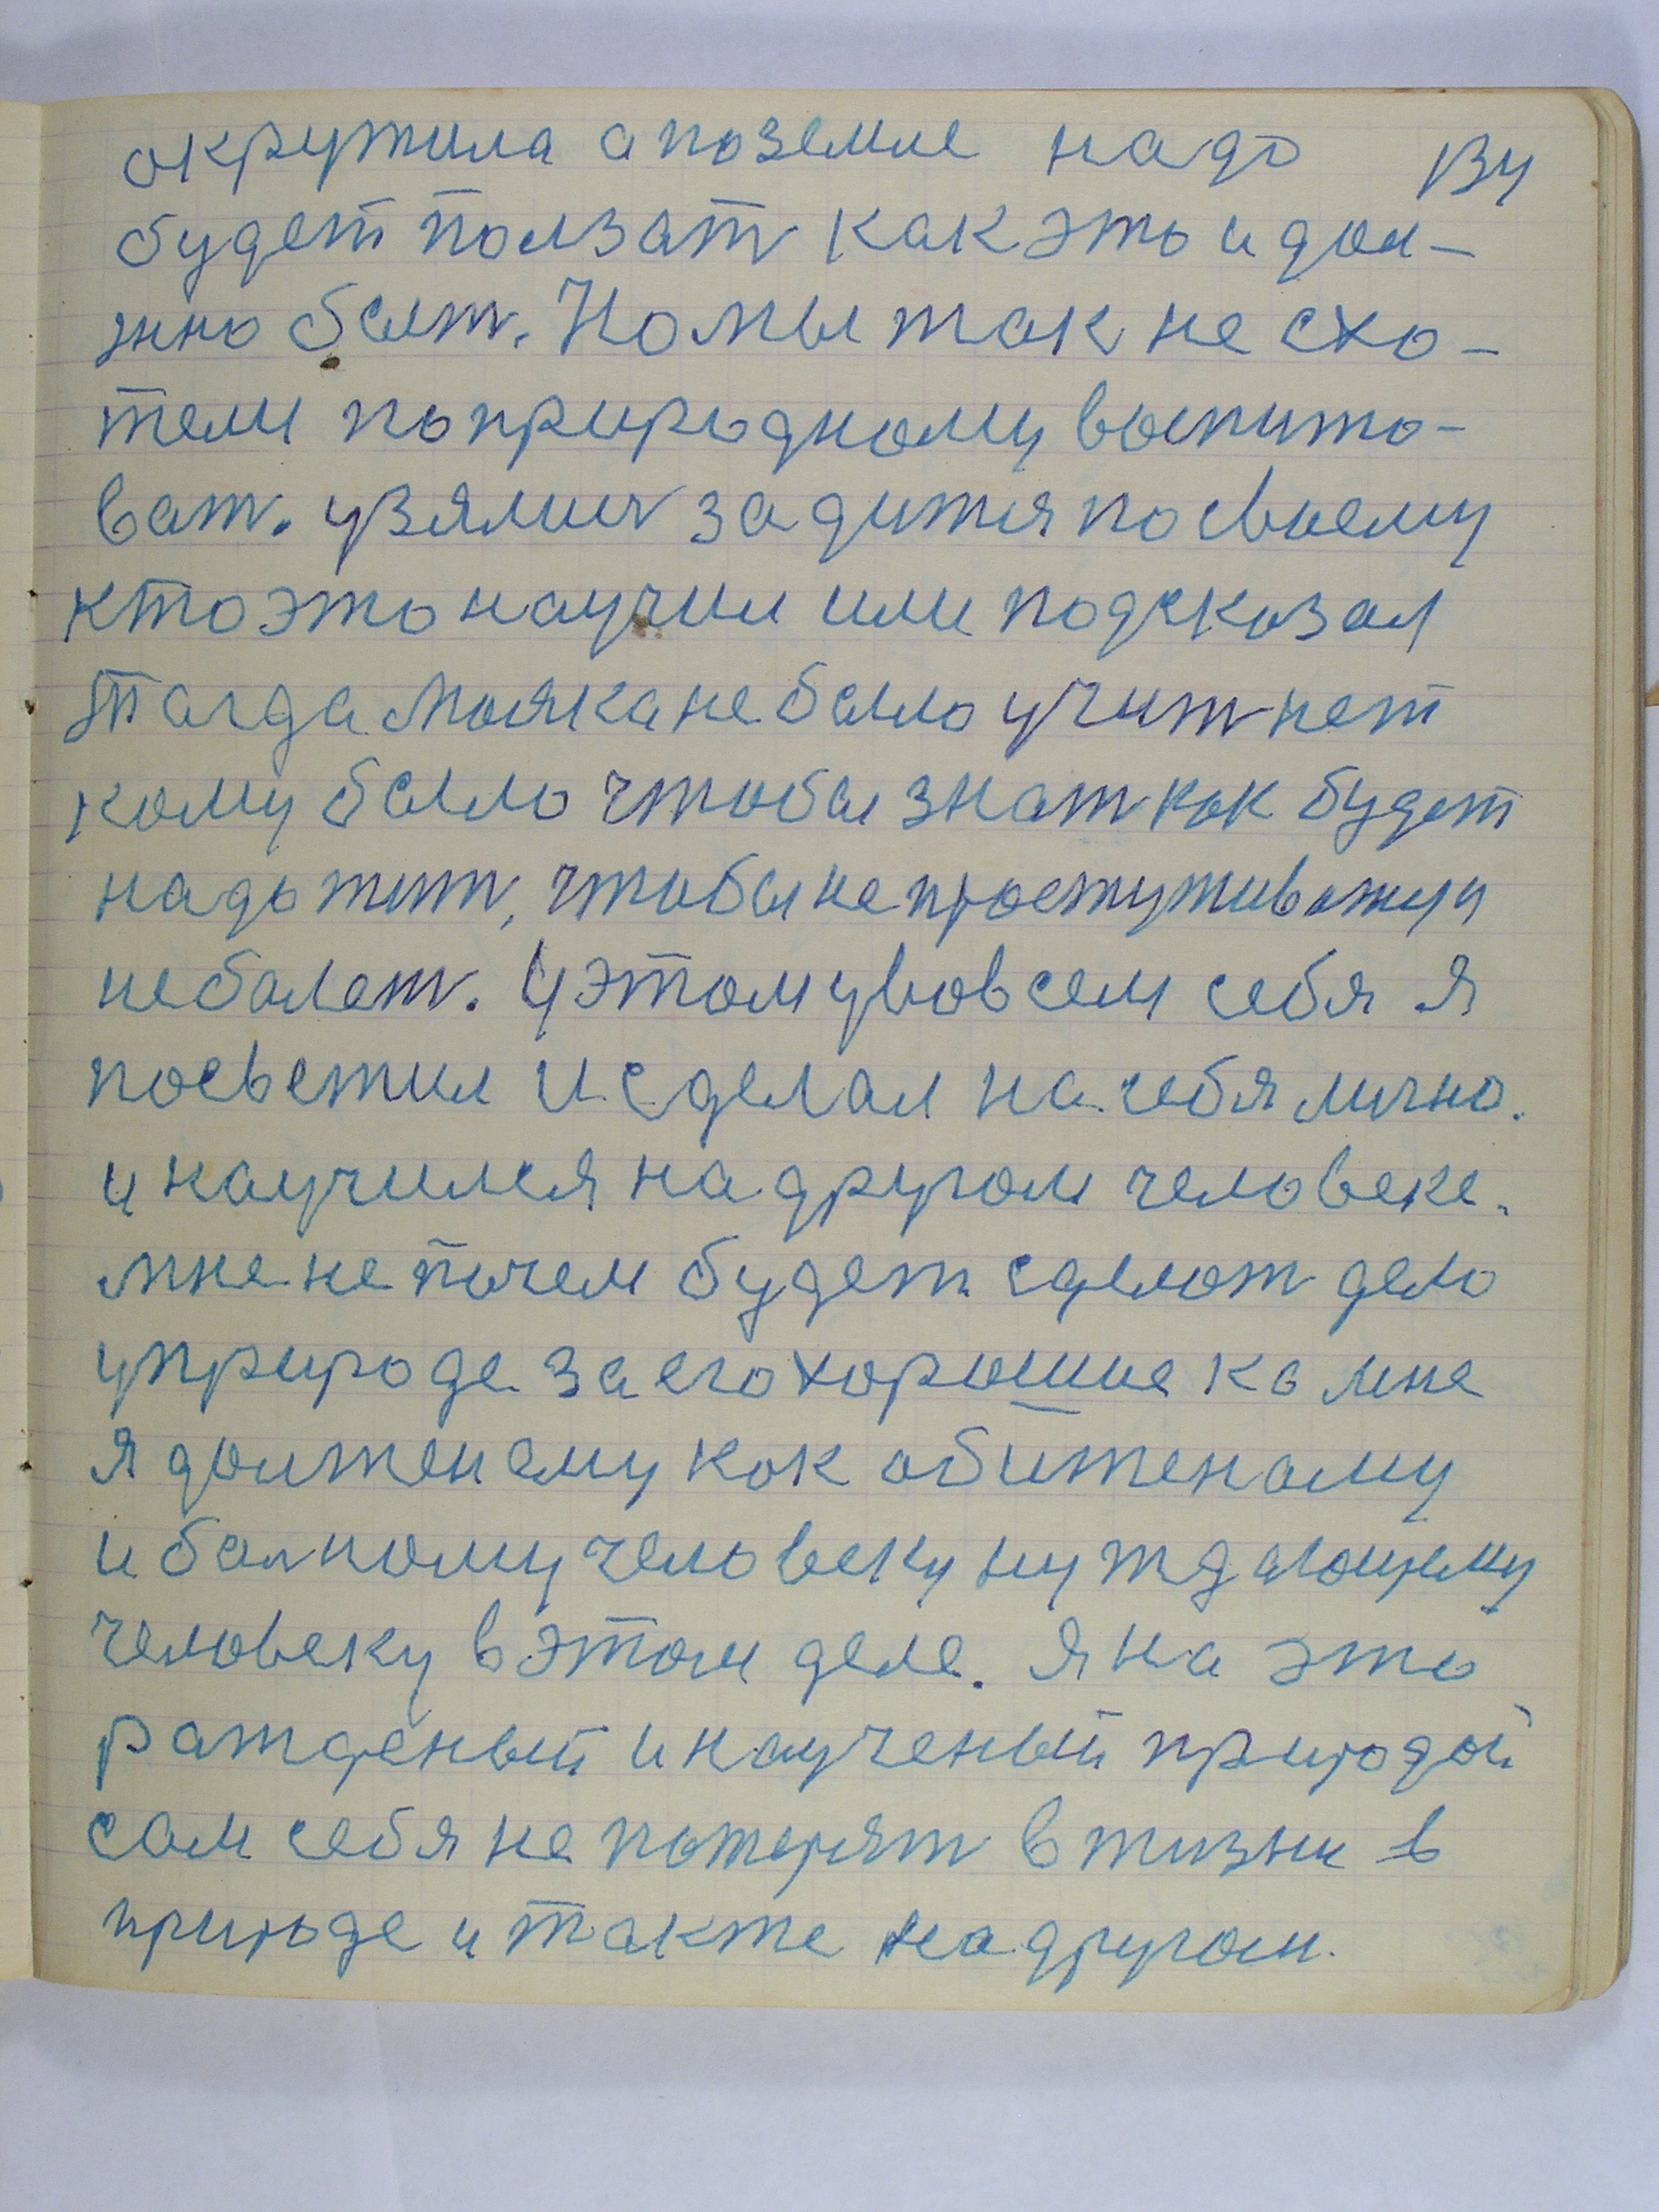 окружила а поземле надо 134
будет ползать как это и дол-
жно быть. Но мы так не схо-
тели поприродному выпито-
вать. узялись за дитя посвоему
кто это научил или подсказал
Тагда маяка не было учить нет
кому было чтобы знать как будет
надо жить, чтобы не простуживатся и
не балеть. У этому вовсем себя я
посветил и сделал на себя лично.
и научился на другом человеке.
мне не почем будет сделать дело
у природе за его хорошие ко мне
я должен ему как обиженому
и балному человеку нуждающему
человеку в этом деле. Я на это
ражденый и наученый природой
сам себя не потерять в жизни в
природе и также на другом.